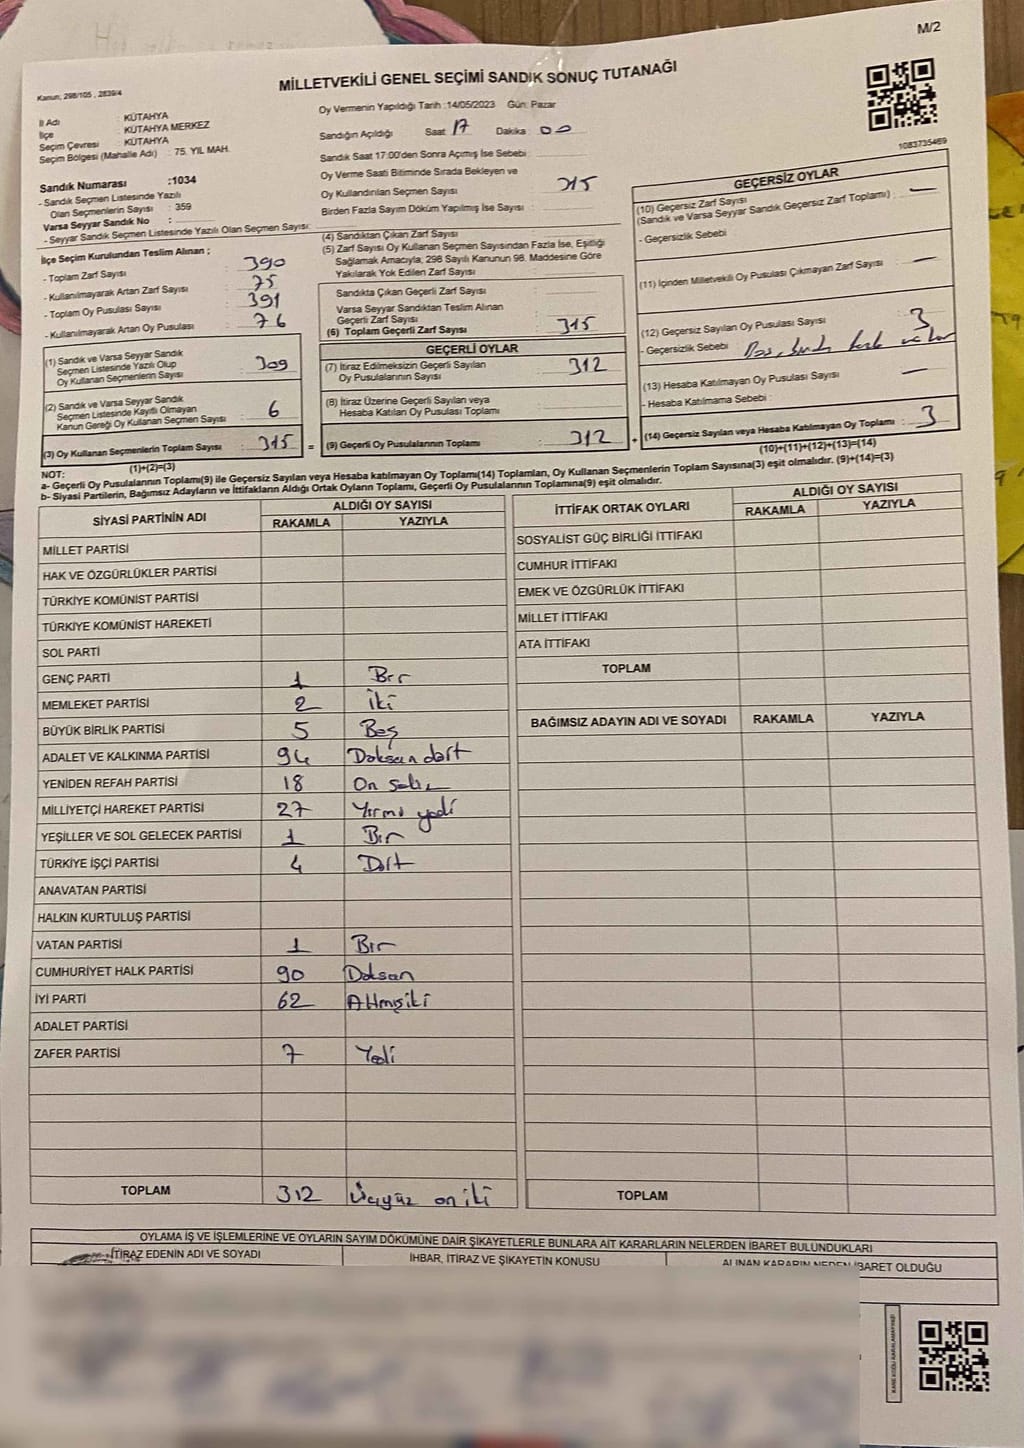 M/2
MİLLETVEKİLİ GENEL SEÇİMİ SANDIK SONUÇ TUTANAĞI
Kanun; 298/105 , 2839/4
İl Adı : KÜTAHYA
İlçe : KÜTAHYA MERKEZ
Seçim Çevresi : KÜTAHYA
Seçim Bölgesi (Mahalle Adı) : 75. YIL MAH.
Oy Vermenin Yapıldığı Tarih :14/05/2023 Gün: Pazar
Sandığın Açıldığı Saat 17 Dakika : 00
Sandık Saat 17:00'den Sonra Açımış İse Sebebi:
Oy Verme Saati Bitiminde Sırada Bekleyen ve
Oy Kullandırılan Seçmen Sayısı : 315
Birden Fazla Sayım Döküm Yapılmış İse Sayısı :
1083735469
Sandık Numarası :1034
- Sandık Seçmen Listesinde Yazılı
Olan Seçmenlerin Sayısı : 359
Varsa Seyyar Sandık No :
- Seyyar Sandık Seçmen Listesinde Yazılı Olan Seçmen Sayısı:
İlçe Seçim Kurulundan Teslim Alınan ;
- Toplam Zarf Sayısı : 390
- Kullanılmayarak Artan Zarf Sayısı : 75
- Toplam Oy Pusulası Sayısı : 391
- Kullanılmayarak Artan Oy Pusulası : 76
(1) Sandık ve Varsa Seyyar Sandık
Seçmen Listesinde Yazılı Olup
Oy Kullanan Seçmenlerin Sayısı : 309
(2) Sandık ve Varsa Seyyar Sandık
Seçmen Listesinde Kayıtlı Olmayan
Kanun Gereği Oy Kullanan Seçmen Sayısı : 6
(3) Oy Kullanan Seçmenlerin Toplam Sayısı : 315 =
(4) Sandıktan Çıkan Zarf Sayısı :
(5) Zarf Sayısı Oy Kullanan Seçmen Sayısından Fazla İse, Eşitliği
Sağlamak Amacıyla, 298 Sayılı Kanunun 98. Maddesine Göre
Yakılarak Yok Edilen Zarf Sayısı :
Sandıkta Çıkan Geçerli Zarf Sayısı :
Varsa Seyyar Sandıktan Teslim Alınan
Geçerli Zarf Sayısı :
(6) Toplam Geçerli Zarf Sayısı : 315
GEÇERLİ OYLAR
(7) İtiraz Edilmeksizin Geçerli Sayılan
Oy Pusulalarının Sayısı : 312
(8) İtiraz Üzerine Geçerli Sayılan veya
Hesaba Katılan Oy Pusulası Toplamı :
(9) Geçerli Oy Pusulalarının Toplamı : 312 +
GEÇERSİZ OYLAR
(10) Geçersiz Zarf Sayısı
(Sandık ve Varsa Seyyar Sandık Geçersiz Zarf Toplamı) : —
- Geçersizlik Sebebi
(11) İçinden Milletvekili Oy Pusulası Çıkmayan Zarf Sayısı : —
(12) Geçersiz Sayılan Oy Pusulası Sayısı : 3
- Geçersizlik Sebebi
(13) Hesaba Katılmayan Oy Pusulası Sayısı : —
- Hesaba Katılmama Sebebi :
(14) Geçersiz Sayılan veya Hesaba Katılmayan Oy Toplamı : 3
(10)+(11)+(12)+(13)=(14)
NOT: (1)+(2)=(3)
a- Geçerli Oy Pusulalarının Toplamı(9) ile Geçersiz Sayılan veya Hesaba katılmayan Oy Toplamı(14) Toplamları, Oy Kullanan Seçmenlerin Toplam Sayısına(3) eşit olmalıdır. (9)+(14)=(3)
b- Siyasi Partilerin, Bağımsız Adayların ve İttifakların Aldığı Ortak Oyların Toplamı, Geçerli Oy Pusulalarının Toplamına(9) eşit olmalıdır.
SİYASİ PARTİNİN ADI ALDIĞI OY SAYISI
RAKAMLA YAZIYLA
MİLLET PARTİSİ
HAK VE ÖZGÜRLÜKLER PARTİSİ
TÜRKİYE KOMÜNİST PARTİSİ
TÜRKİYE KOMÜNİST HAREKETİ
SOL PARTİ
GENÇ PARTİ 1 Bir
MEMLEKET PARTİSİ 2 İki
BÜYÜK BİRLİK PARTİSİ 5 Beş
ADALET VE KALKINMA PARTİSİ 94 Doksan dört
YENİDEN REFAH PARTİSİ 18 On sekiz
MİLLİYETÇİ HAREKET PARTİSİ 27 Yirmi yedi
YEŞİLLER VE SOL GELECEK PARTİSİ 1 Bir
TÜRKİYE İŞÇİ PARTİSİ 4 Dört
ANAVATAN PARTİSİ
HALKIN KURTULUŞ PARTİSİ
VATAN PARTİSİ 1 Bir
CUMHURİYET HALK PARTİSİ 90 Doksan
İYİ PARTİ 62 Altmışiki
ADALET PARTİSİ
ZAFER PARTİSİ 7 Yedi
TOPLAM 312 Üçyüz on iki
İTTİFAK ORTAK OYLARI ALDIĞI OY SAYISI
RAKAMLA YAZIYLA
SOSYALİST GÜÇ BİRLİĞİ İTTİFAKI
CUMHUR İTTİFAKI
EMEK VE ÖZGÜRLÜK İTTİFAKI
MİLLET İTTİFAKI
ATA İTTİFAKI
TOPLAM
BAĞIMSIZ ADAYIN ADI VE SOYADI RAKAMLA YAZIYLA
TOPLAM
OYLAMA İŞ VE İŞLEMLERİNE VE OYLARIN SAYIM DÖKÜMÜNE DAİR ŞİKAYETLERLE BUNLARA AİT KARARLARIN NELERDEN İBARET BULUNDUKLARI
İTİRAZ EDENİN ADI VE SOYADI İHBAR, İTİRAZ VE ŞİKAYETİN KONUSU ALINAN KARARIN NEDEN İBARET OLDUĞU